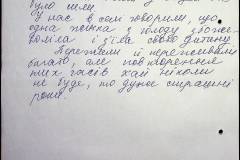 було шли.
У нас в селі говорили, що
одна жінка з голоду збоже-
воліла і з'їла свою дитину.
Пережили й переживали
багато, але повторення
них часів хай ніколи
не буде, то дуже страшні
роки.